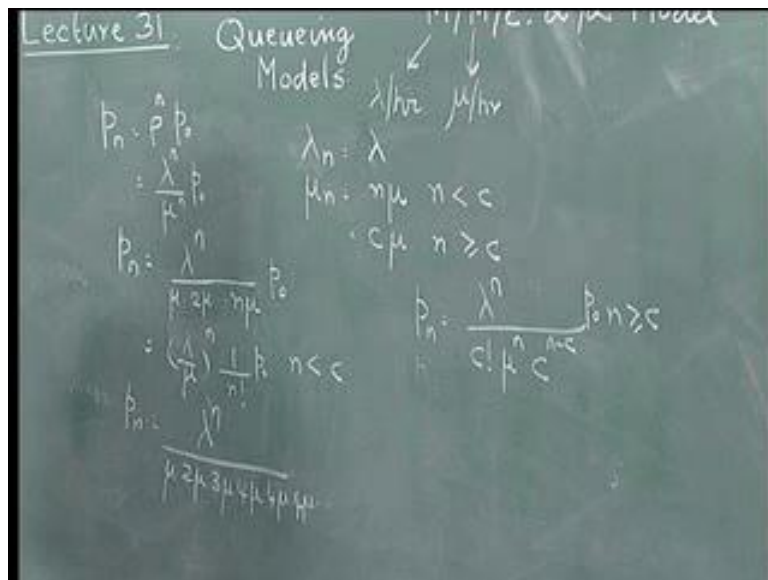 Lecture 31
Queueing
Models
M/M/c: ∞/∞ Model
λ/hr μ/hr
pₙ = ρⁿ p₀
= λⁿ/μⁿ p₀
pₙ = λⁿ/(μ 2μ - nμ) p₀
= (λ/μ)ⁿ 1/n! p₀ n < c
pₙ = λⁿ/(μ 2μ 3μ 4μ 4μ 4μ..
λₙ = λ
μₙ = nμ n < c
= cμ n ≥ c
pₙ = λⁿ/(c! μⁿ cⁿ⁻ᶜ) p₀ n ≥ c